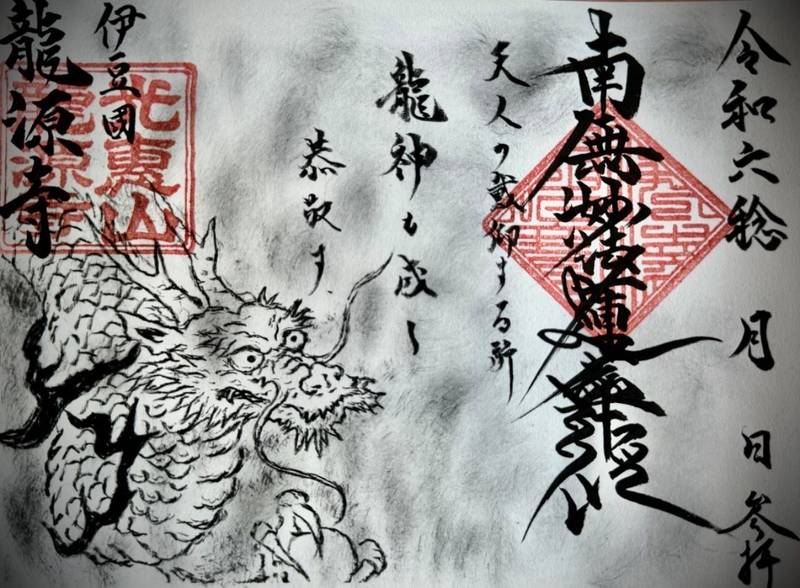 令和六稔 月 日 参拝
南無妙法蓮華経
天人の戴仰する所
龍神も咸く
恭敬す
伊豆國
龍源寺
龍源寺